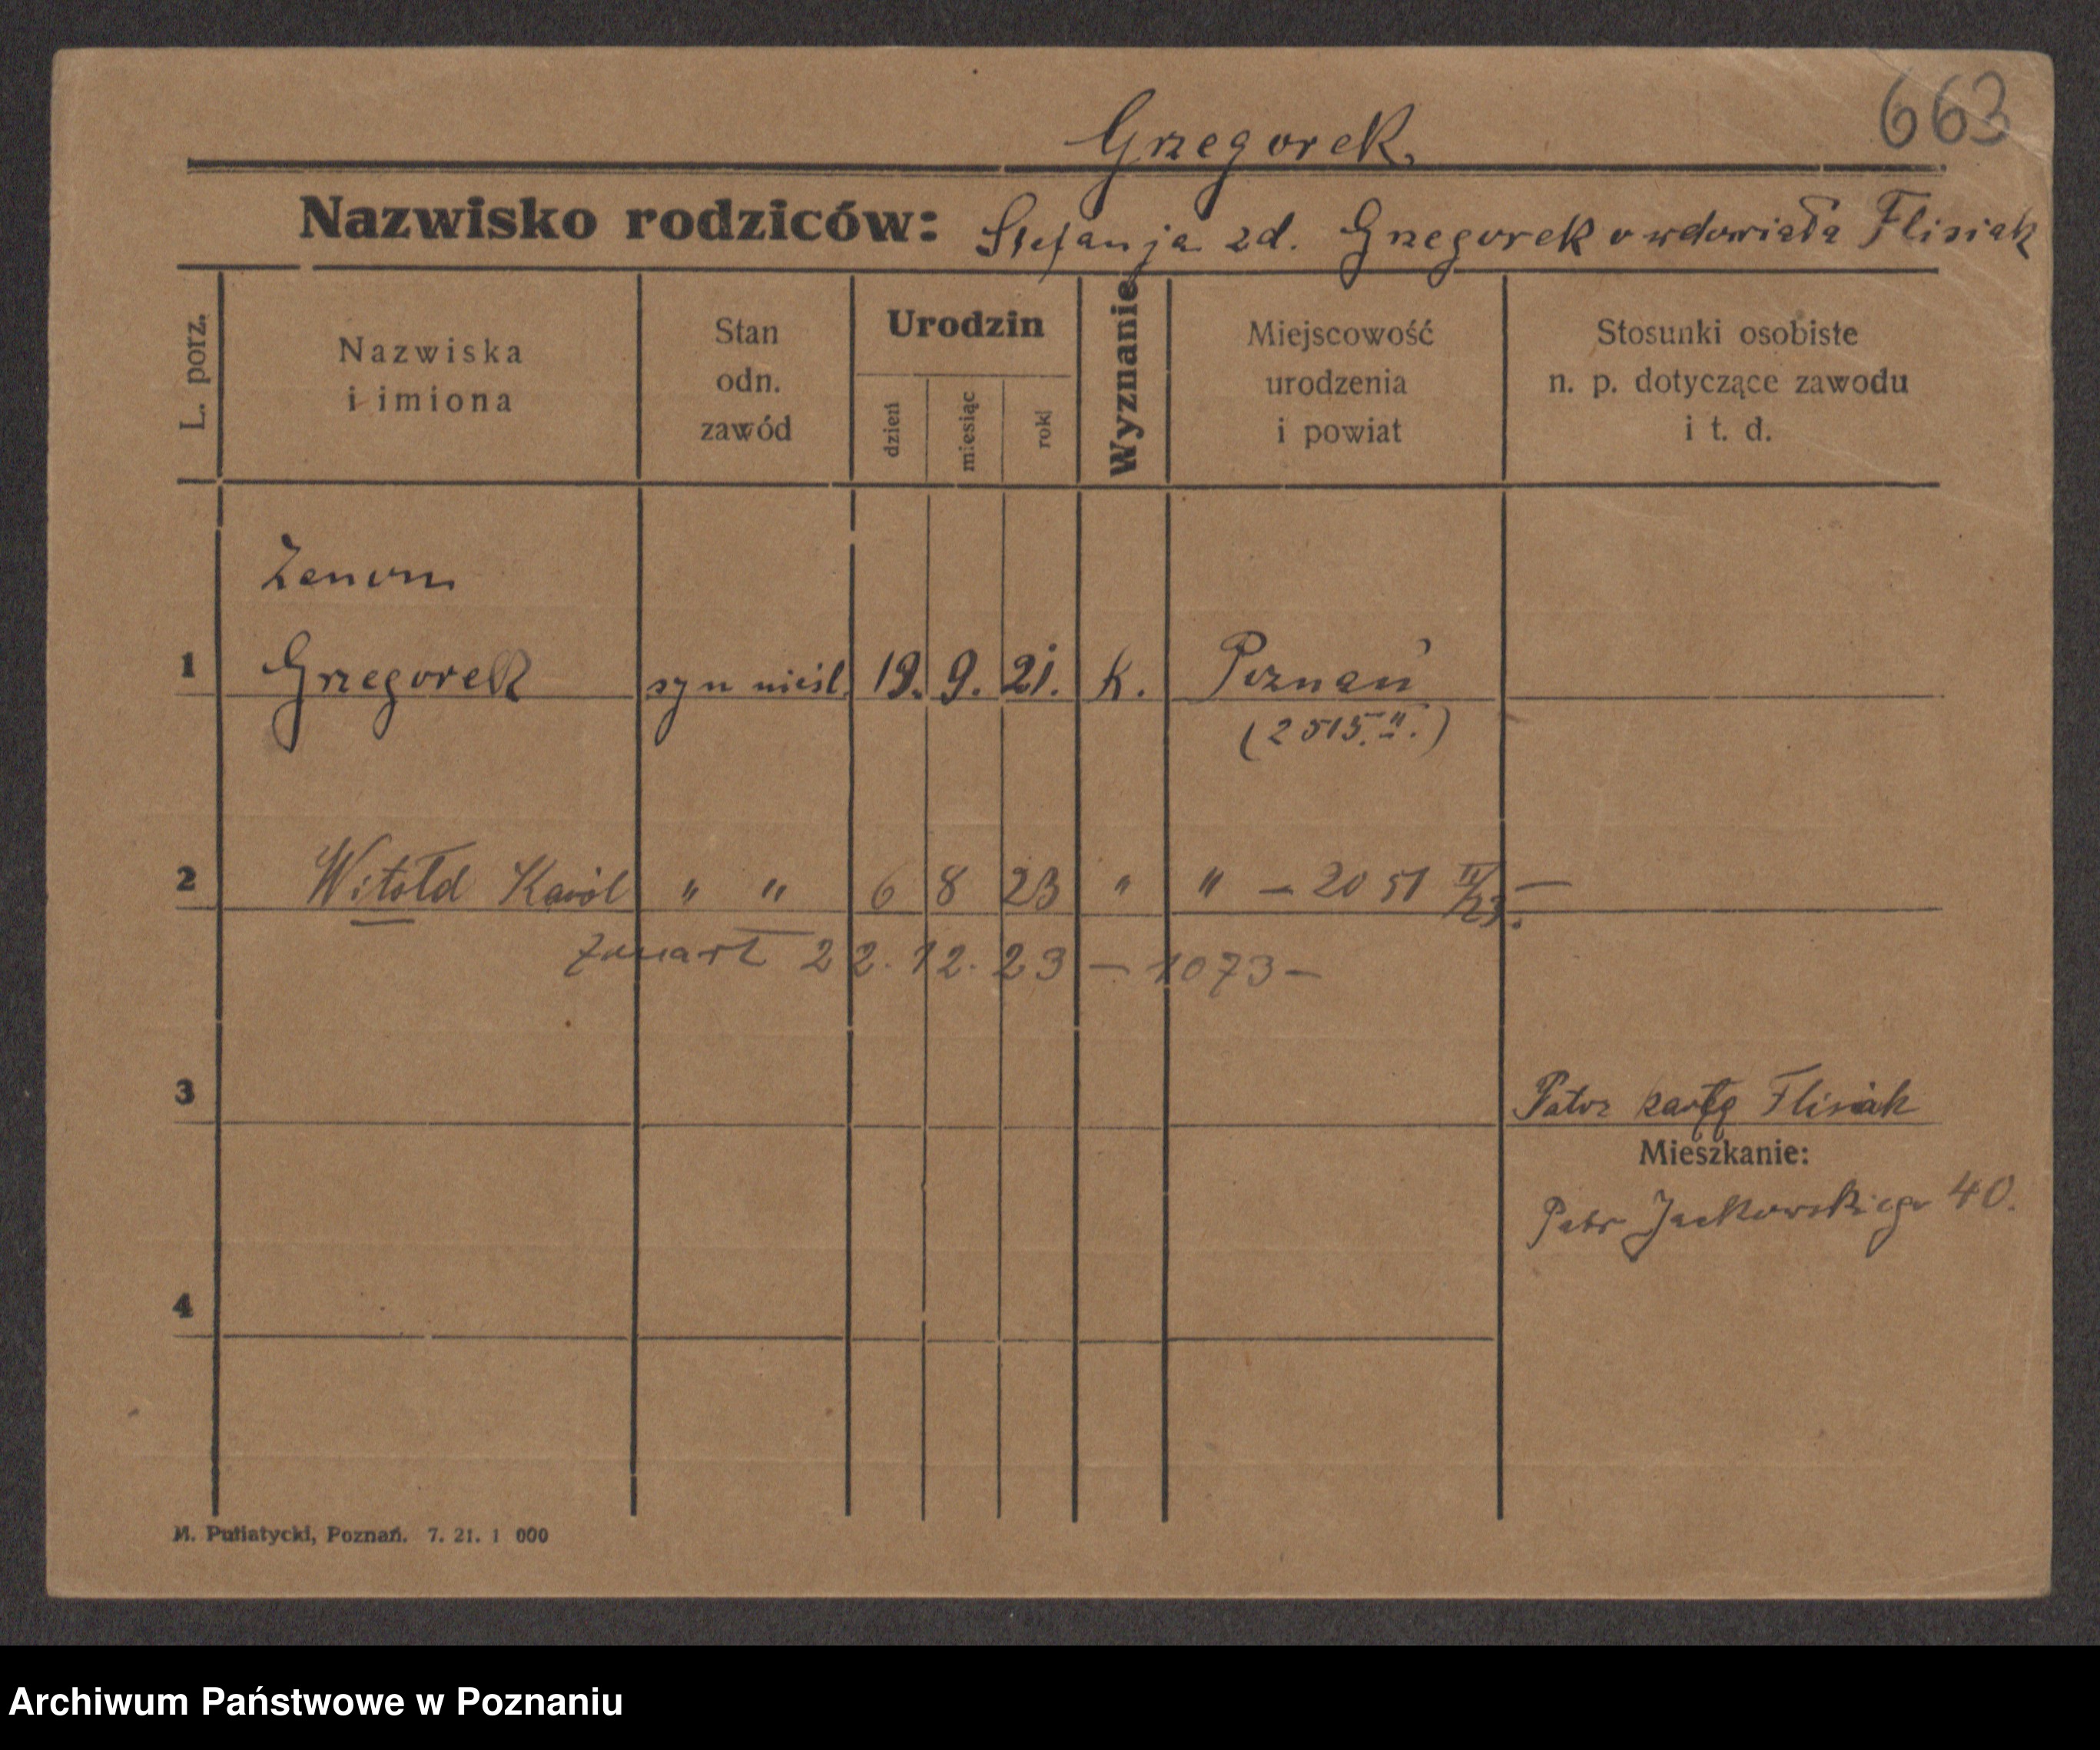 663
Grzegorek.
Nazwisko rodziców: Stefanja zd. Grzegorek owdowiała Flisiak
L. porz.
Nazwiska
i imiona
Stan
odn.
zawód
Urodzin
dzień
miesiąc
rok
Wyznanie
Miejscowość
urodzenia
i powiat
Stosunki osobiste
n. p. dotyczące zawodu
i t. d.
Zenon
1 Grzegorek syn nieśl. 19. 9. 21. k. Poznań
(2515.II.)
2 Witołd Karól " " 6 8 23 " " – 2051 II/23. –
zmarł 22.12.23 – 1073 –
3
Patrz kartę Flisiak
Mieszkanie:
Patr Jackowskiego 40.
4
M. Putiatycki, Poznań. 7. 21. 1 000
Archiwum Państwowe w Poznaniu